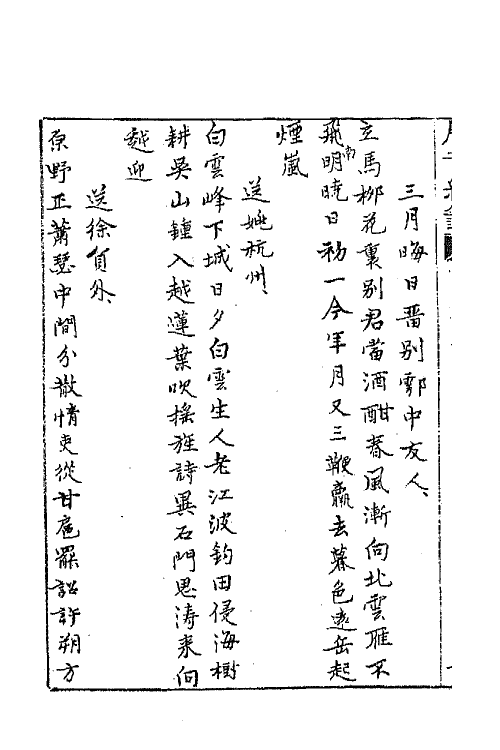 三月晦日留别鄠中友人
立馬柳花裏别君當酒酣春風漸向北雲雁不
飛南明曉日初一今年月又三鞭羸去暮色遠岳起
煙嵐
送姚杭州
白雲峰下城日夕白雲生人老江波釣田侵海樹
耕吳山鐘入越蓮葉吹摇旌詩異石門思涛来向
越迎
送徐員外
原野正蕭瑟中間分散情吏從甘扈罷詔許朔方